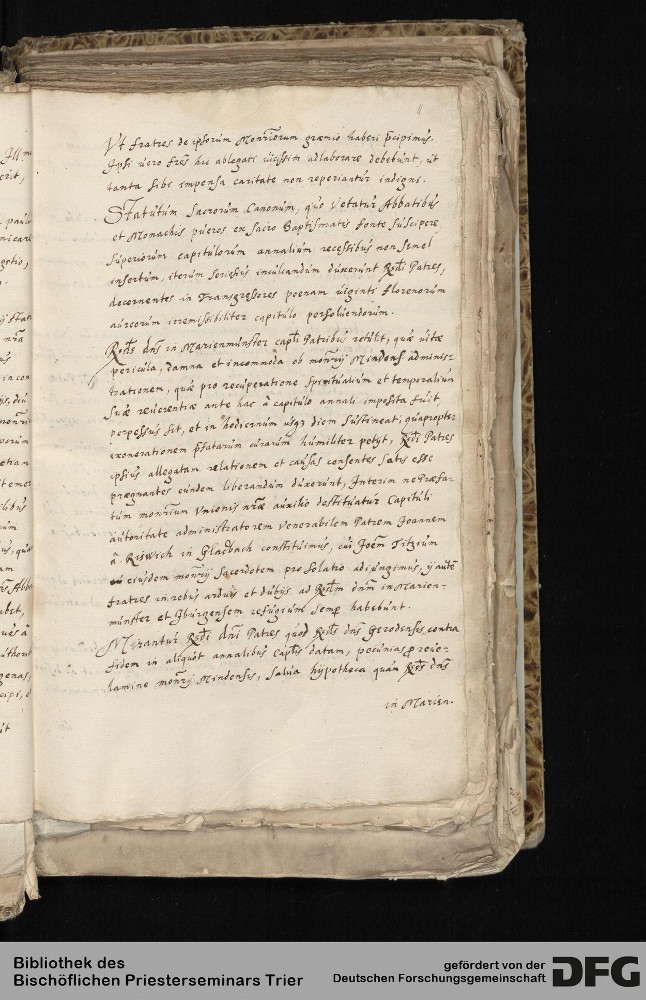 11
Vt fratres de ipsorum Monrĩorum græmio haberi p̃cipimus.
Ipsi uero frẽs huc ablegati uicissim adlaborare debebunt, ut
tanta sibi impensa caritate non reperiantur indigni.
Statutum Sacrorum Canonum, quo Vetatur Abbatibus
et Monachis pueros ex Sacro Baptismatis fonte Suscipere
Superiorum capitulorum annalium recessibus non semel
insertum, iterum seriosius inculcandum duxerunt Rndĩ Patres,
decernentes in Transgressores poenam uiginti florenorum
aureorum irremissibiliter capitulo persoluendorum.
Rndũs dñs in Marienmünster capli Patribus retulit, quæ uitæ
pericula, damna et incommoda ob monrĩj Mindens adminis-
trationem, quæ pro recuperatione Spiritualium et temporalium
suæ reuerentiæ ante hac â capitulo annali imposita fuit,
perpessus sit, et in hodiernum usq3 diem Sustineat; quapropter
exonerationem p̃fatarum curarum humiliter petijt, Rndĩ Patres
ipsius allegatam relationem et causas consentes Satis esse
prægnantes eundem liberandum duxerunt, Interim ne Præfa-
tum monrĩum Vnionis nr̃æ auxilio destituatur Capituli
autoritate administratorem Venerabilem Patrem Joannem
â Riswich in Gladbach constituimus, cui Joem̃ Titzium
eiusdem monrĩj Sacerdotem pro Solatio adiungimus, ij aut̃
fratres in rebus arduis et dubijs ad Rndũm dñm in Marien-
münster et Iburgensem refugium Semp̃ habebunt.
Mirantur Rndĩ dñi Patres quod Rndũs dñs Gerodensis contra
fidem in aliquot annalibus Caplis datam, pecunias pro reue-
lamine monrĩj Mindensis, Salua hypotheca quam Rndũs dñs
in Marien.
Bibliothek des
Bischöflichen Priesterseminars Trier
gefördert von der
Deutschen Forschungsgemeinschaft
DFG